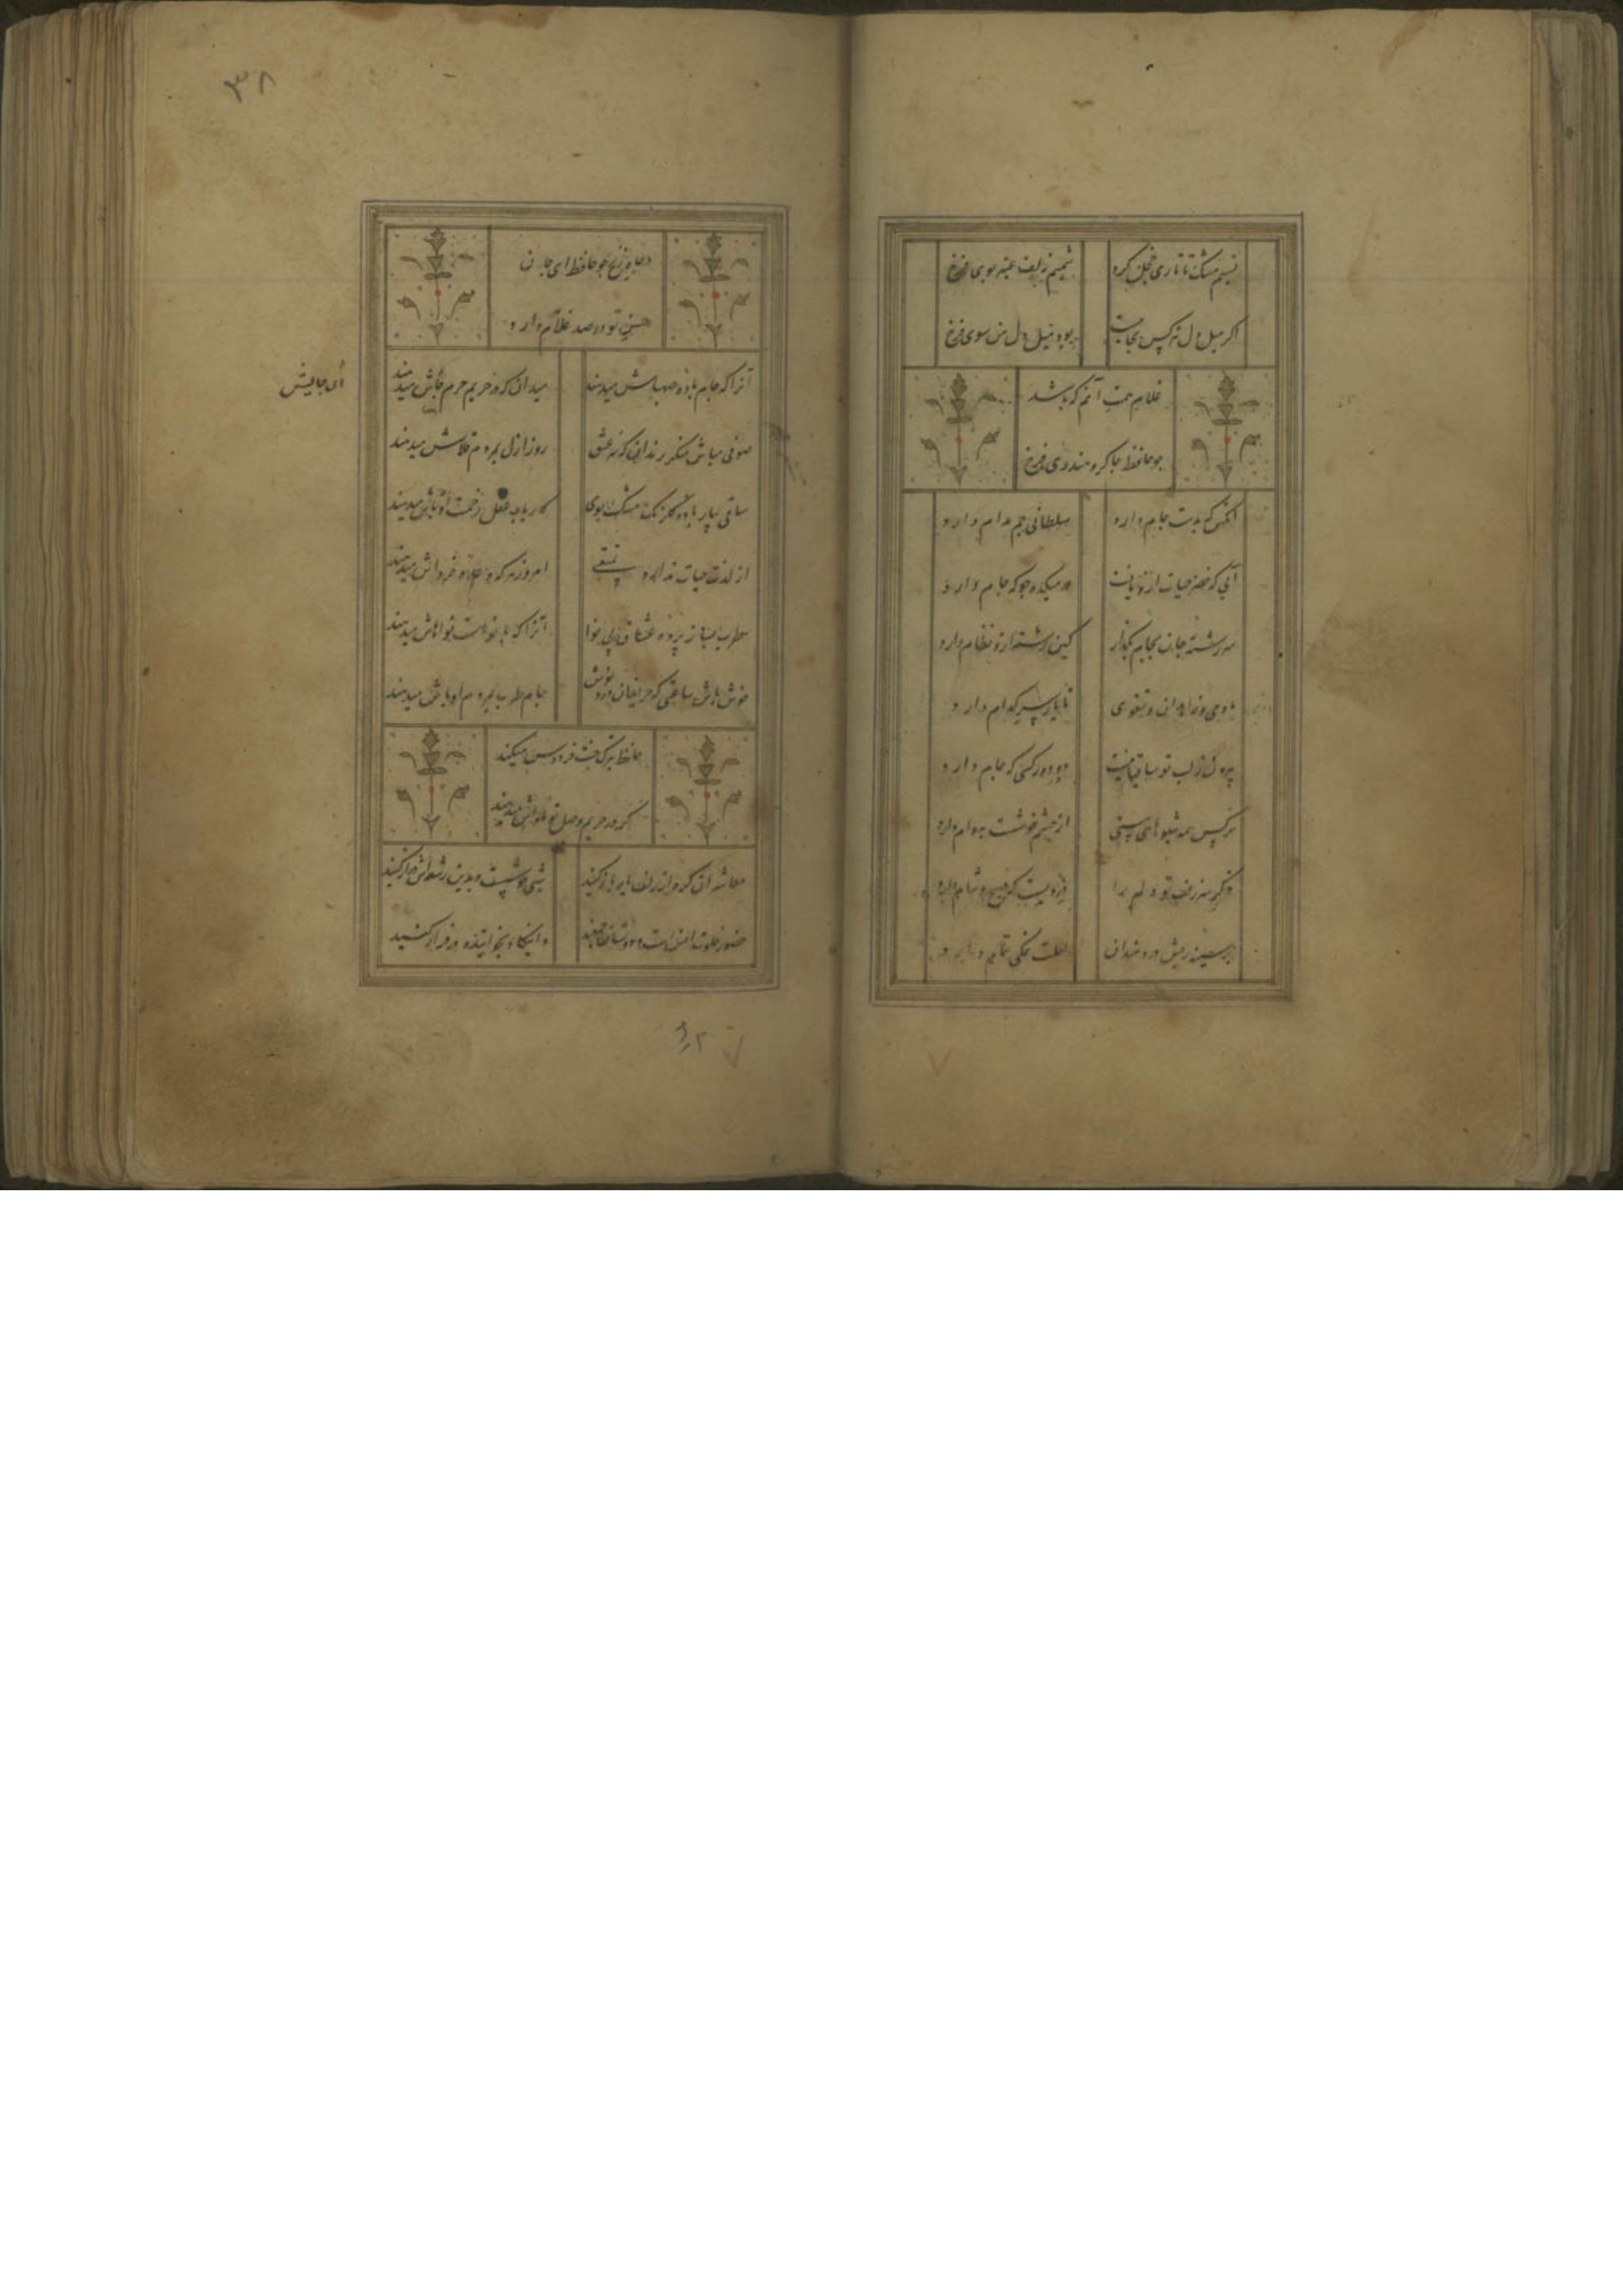 نسیم مشک تاتاری خجل کرد شمیم زلف عنبر بوی فرخ
اگر میل دل هرکس بجاییست بود میل دل من سوی فرخ
غلام همت آنم که باشد
چو حافظ چاکر و هندوی فرخ
آنکس که بدست جام دارد سلطانی جم مدام دارد
آبی که خضر حیات ازو یافت در میکده جو که جام دارد
سررشته جان بجام بگذار کین رشته ازو نظام دارد
ما و می و زاهدان و تقوی تا یار سر کدام دارد
بیرون ز لب تو ساقیا نیست در دور کسی که جام دارد
نرگس همه شیوهای مستی از چشم خوشت بوام دارد
ذکر رخ و زلف تو دلم را وردیست که صبح و شام دارد
بر سینه ریش دردمندان لعلت نمکی تمام دارد
۳۸
در چاه زنخ چو حافظ ای جان
حسن تو دو صد غلام دارد
آنرا که جام باده صهباش میدهند میدان که در حریم حرم جاش میدهند
ای جایش
صوفی مباش منکر رندان که سر عشق روز ازل بمردم قلاش میدهند
ساقی بیار باده گلرنگ مشک بوی کارباب عقل زحمت اوباش میدهند
از لذت حیات ندارد تمتعی امروز هر که وعده فرداش میدهند
مطرب بساز پرده عشاق بی نوا آنرا که بی نواست نواهاش میدهند
خوش باش ساقی که حریفان دردنوش جام طرب بمردم اوباش میدهند
حافظ بترک جنت فردوس میکند
گر در حریم وصل تو ماواش میدهند
معاشران گره از زلف یار باز کنید شبی خوشست بدین قصه‌اش دراز کنید
حضور خلوت انس است و دوستان جمعند و ان یکاد بخوانید و در فراز کنید